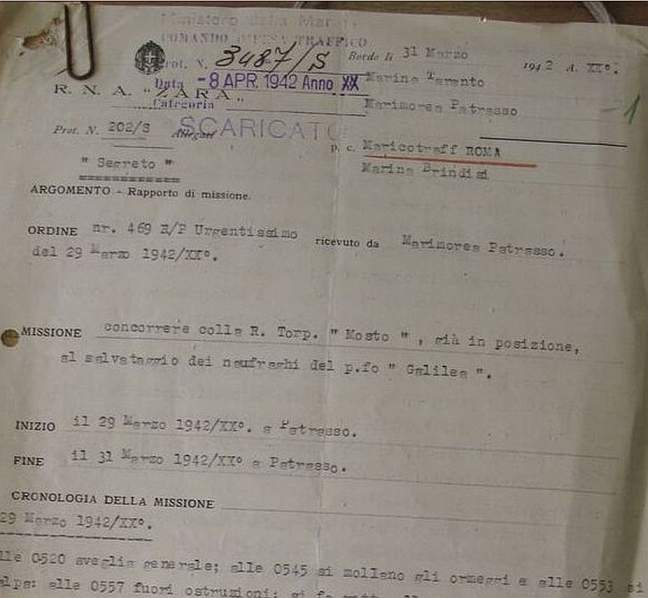 Ministero della Marina
COMANDO DIFESA TRAFFICO
Prot. N. 3487/S
Bordo li 31 Marzo 1942 A. XX°.
Data -8 APR. 1942 Anno XX
Marina Taranto
R. N. A. "ZARA"
Categoria
Marimorea Patrasso
1
Prot. N. 202/S Allegati SCARICATO
p. c. Maricotraff ROMA
" Segreto "
Marina Brindisi
ARGOMENTO - Rapporto di missione.
ORDINE nr. 469 R/P Urgentissimo ricevuto da Marimorea Patrasso.
del 29 Marzo 1942/XX°.
MISSIONE concorrere colla R. Torp. " Mosto " , già in posizione,
al salvataggio dei naufraghi del p.fo " Galilea ".
INIZIO il 29 Marzo 1942/XX°. a Patrasso.
FINE il 31 Marzo 1942/XX° a Patrasso.
CRONOLOGIA DELLA MISSIONE
29 Marzo 1942/XX°.
lle 0520 sveglia generale; alle 0545 si mollano gli ormeggi e alle 0553 si
alpa: alle 0557 fuori ostruzioni;